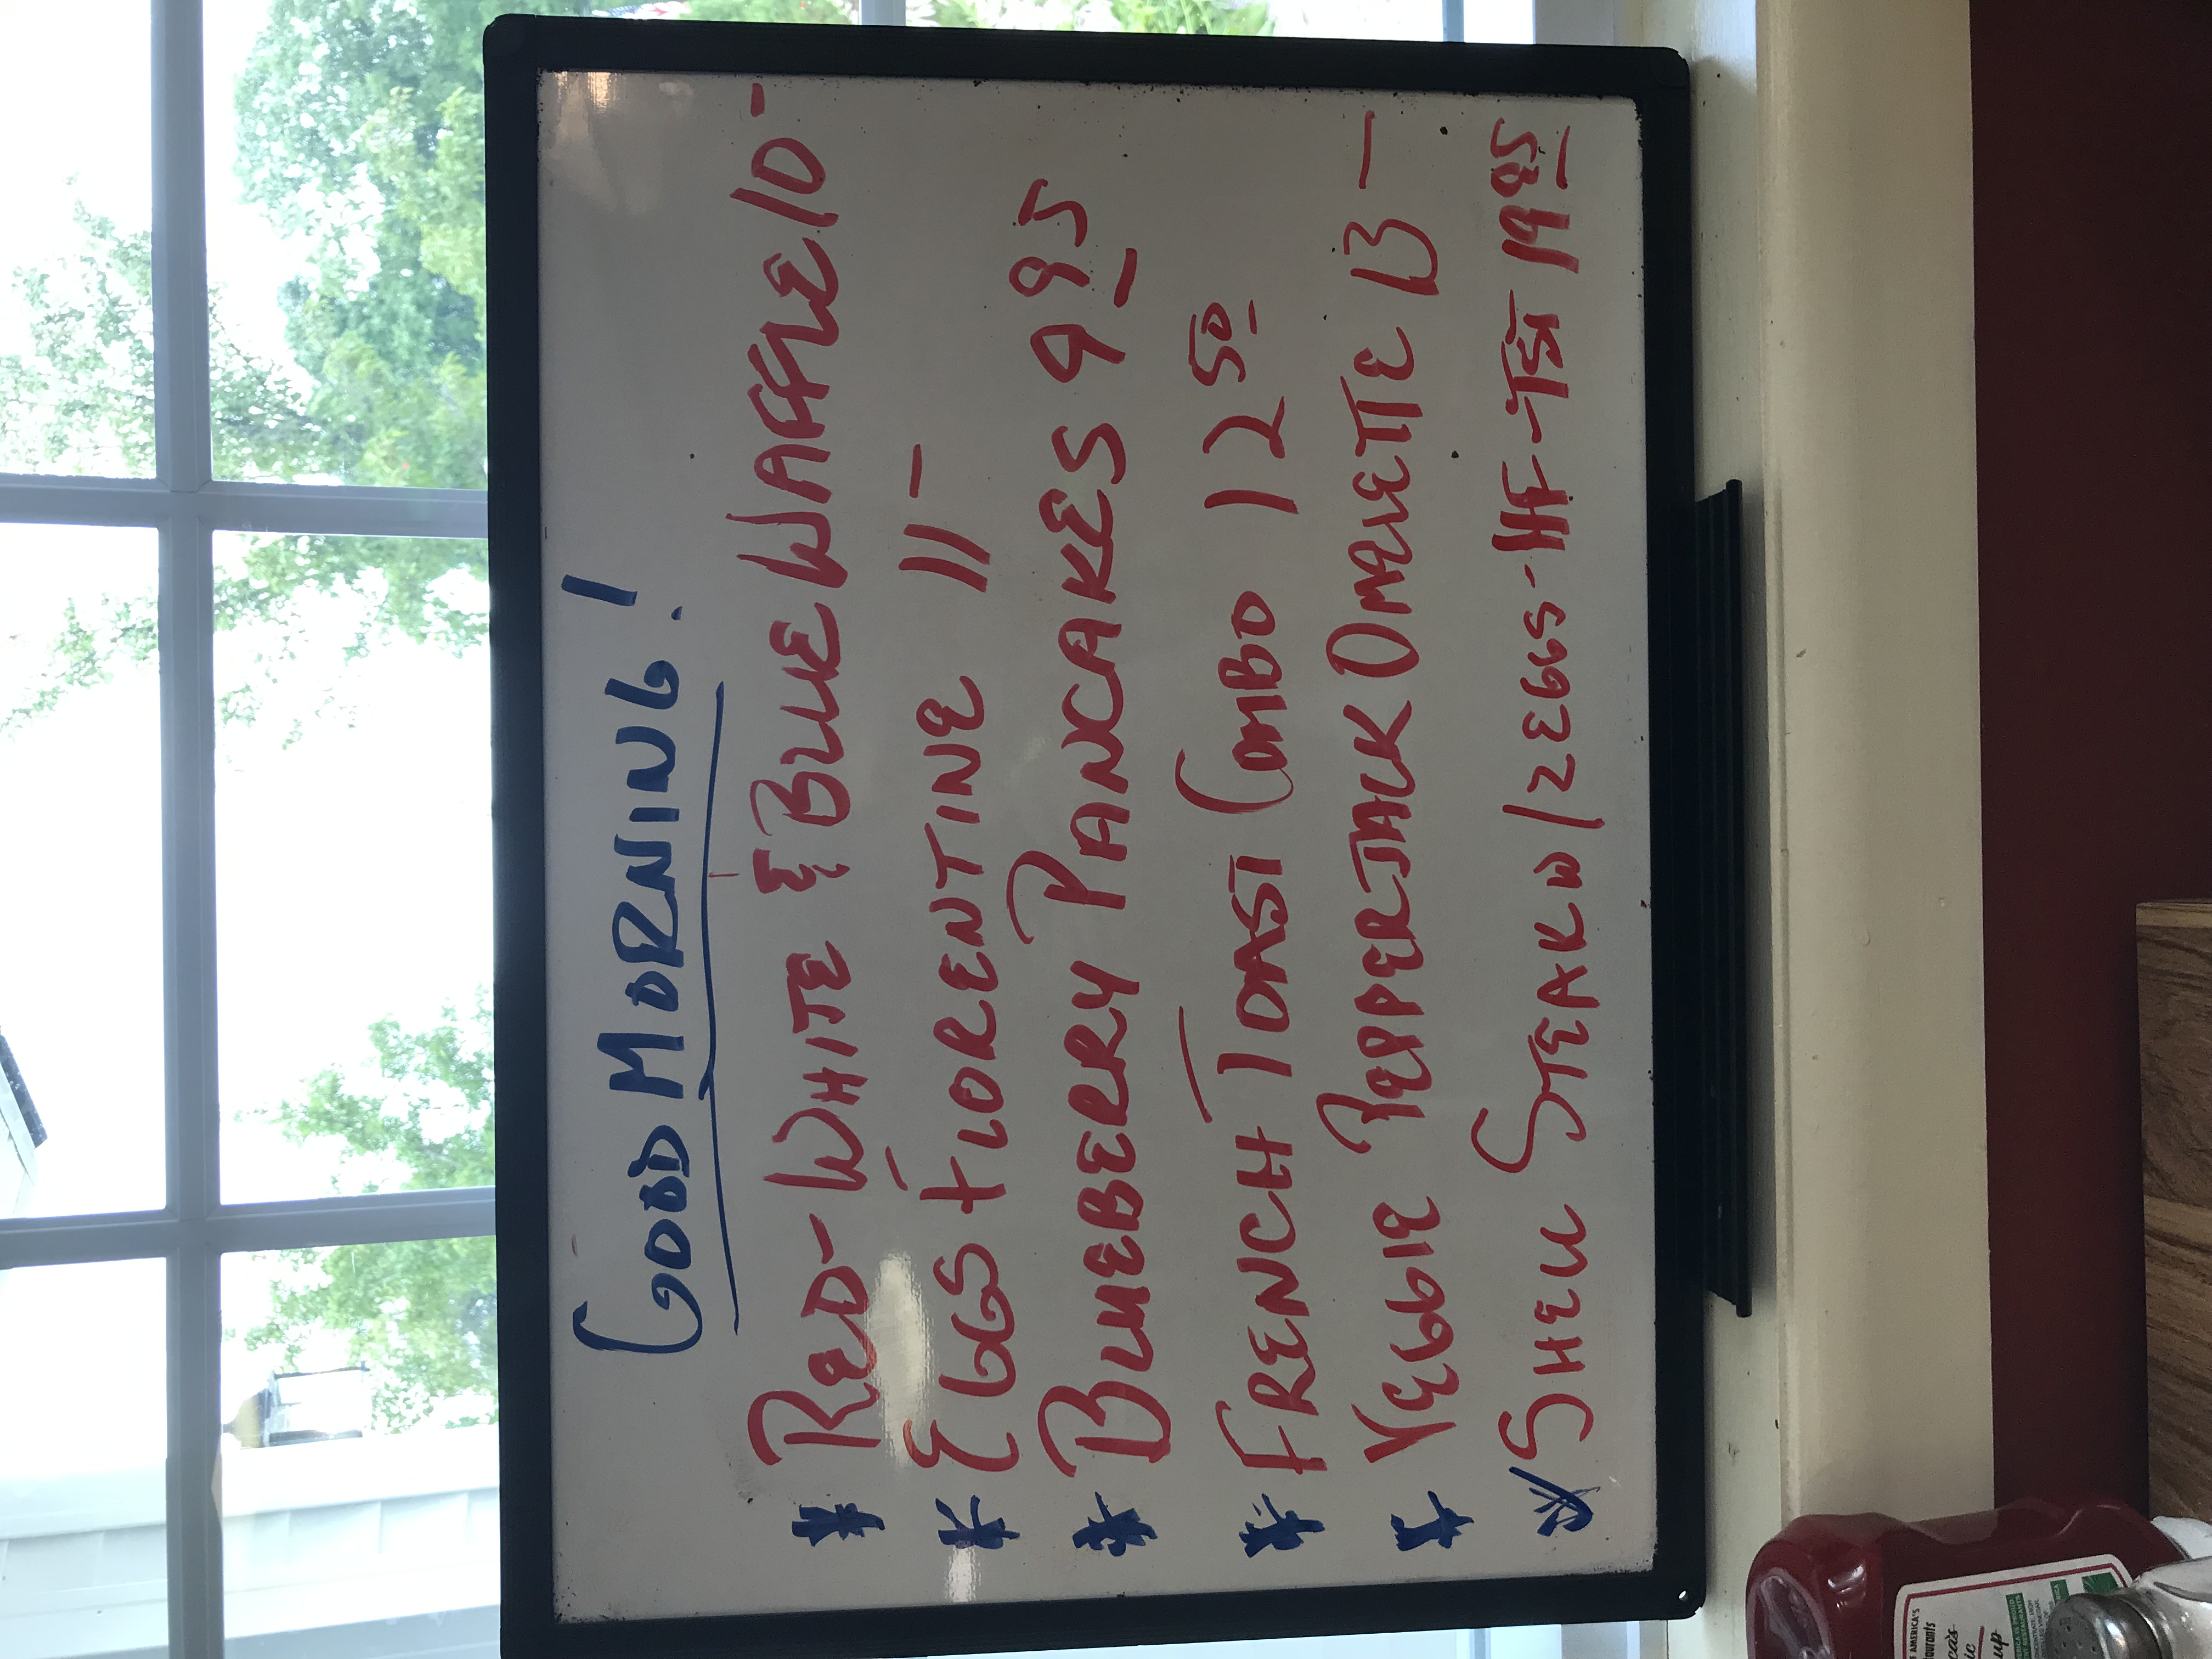 GOOD MORNING!
* RED-WHITE & BLUE WAFFLE 10-
* EGGS FLORENTINE 11-
* BLUEBERRY PANCAKES 9 95
* FRENCH TOAST COMBO 12 50
* VEGGIE PEPPERJACK OMELETTE 13-
* SHELL STEAK W/2EGGS-HF-TST 19 95
AMERICA'S